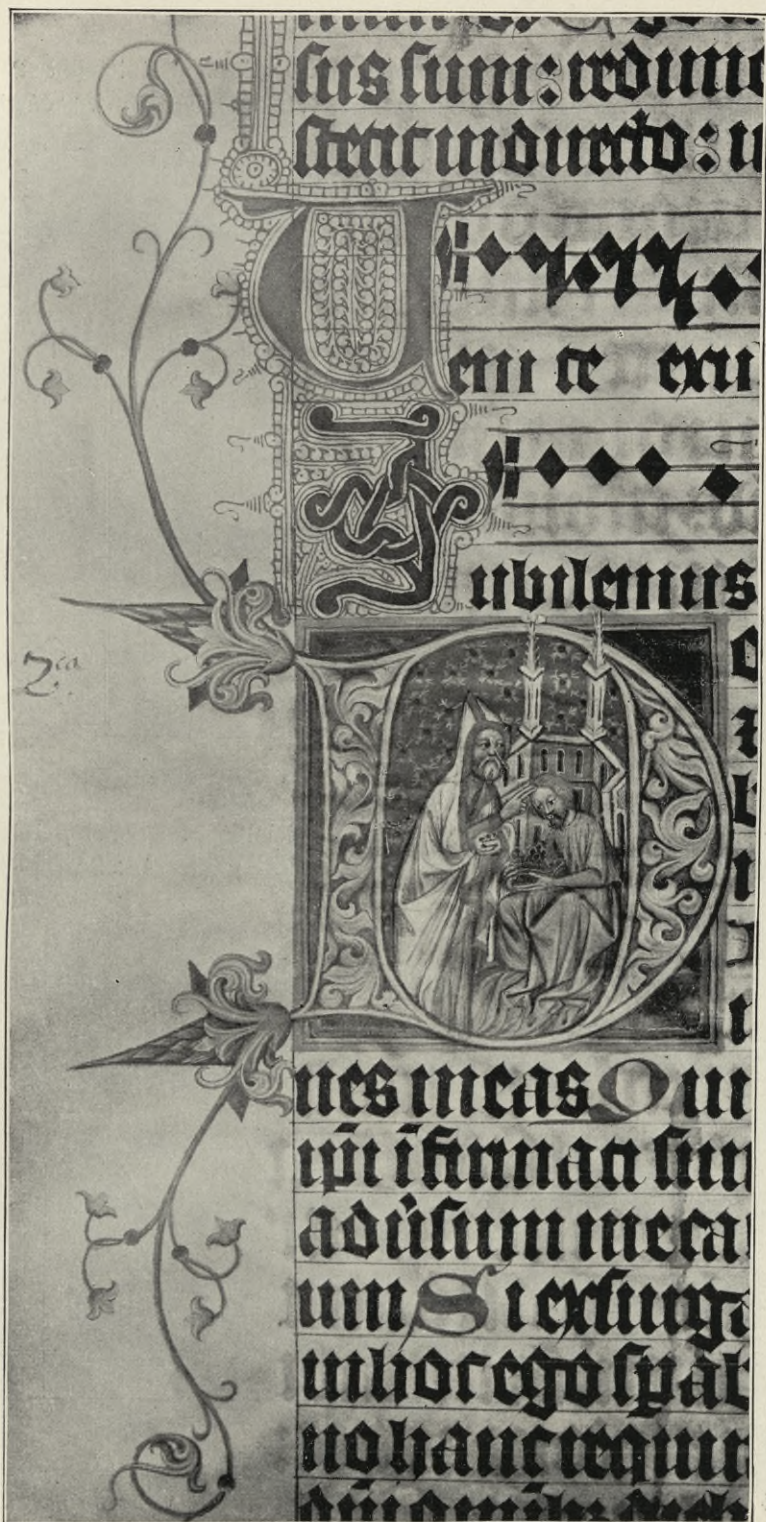 sus sum: redime
stetit in directo: i
Veni te exu
Iubilemus
D
nes meas Qui
ipi īfirmati sun
adūsum me ca
um Si exsurga
in hoc ego spab
no hanc requir